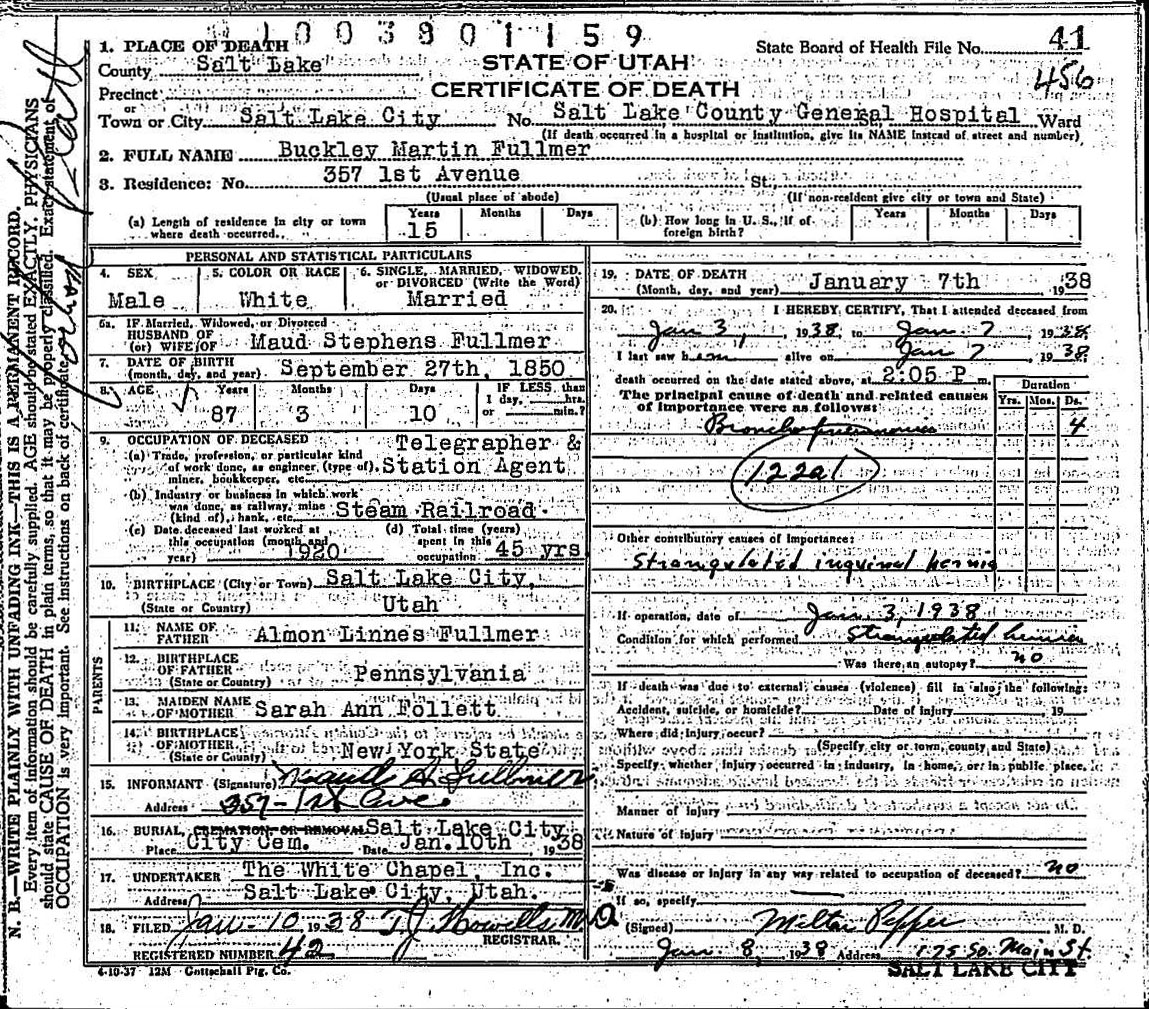 1003801159
1. PLACE OF DEATH
State Board of Health File No. 41
County Salt Lake
STATE OF UTAH
456
Precinct
CERTIFICATE OF DEATH
or
Town or City Salt Lake City No. Salt Lake County General Hospital Ward
(If death occurred in a hospital or institution, give its NAME instead of street and number)
2. FULL NAME Buckley Martin Fullmer
3. Residence: No. 357 1st Avenue St.
(Usual place of abode) (If non-resident give city or town and State)
(a) Length of residence in city or town where death occurred. Years 15 Months Days
(b) How long in U. S., if of foreign birth? Years Months Days
PERSONAL AND STATISTICAL PARTICULARS
4. SEX Male
5. COLOR OR RACE White
6. SINGLE, MARRIED, WIDOWED, or DIVORCED (Write the Word) Married
6a. IF Married, Widowed, or Divorced
HUSBAND OF
(or) WIFE OF Maud Stephens Fullmer
7. DATE OF BIRTH
(month, day, and year) September 27th, 1850
8. AGE Years Months Days IF LESS than
1 day, hrs.
87 3 10 or min.?
9. OCCUPATION OF DECEASED Telegrapher &
(a) Trade, profession, or particular kind
of work done, as engineer, (type of), Station Agent
miner, bookkeeper, etc.
(b) Industry or business in which work
was done, as railway, mine
(kind of), bank, etc. Steam Railroad
(c) Date deceased last worked at
this occupation (month and
year) 1920
(d) Total time (years)
spent in this
occupation 45 yrs
10. BIRTHPLACE (City or Town) Salt Lake City,
(State or Country) Utah
PARENTS
11. NAME OF
FATHER Almon Linnes Fullmer
12. BIRTHPLACE
OF FATHER
(State or Country) Pennsylvania
13. MAIDEN NAME
OF MOTHER Sarah Ann Follett
14. BIRTHPLACE
OF MOTHER
(State or Country) New York State
15. INFORMANT (Signature) Maude S. Fullmer
Address 357 - 1st Ave
16. BURIAL, CREMATION OR REMOVAL Salt Lake City
Place City Cem. Date Jan. 10th, 1938
17. UNDERTAKER The White Chapel, Inc.
Address Salt Lake City, Utah.
18. FILED Jan - 10 1938 T. J. Howells M.D.
REGISTRAR.
REGISTERED NUMBER 42
4-10-37 12M Gottschall Ptg. Co.
19. DATE OF DEATH
(Month, day, and year) January 7th 1938
20. I HEREBY CERTIFY, That I attended deceased from
Jan 3, 1938, to Jan. 7 1938
I last saw him alive on Jan 7, 1938
death occurred on the date stated above, at 2:05 P m.
The principal cause of death and related causes
of importance were as follows:
Duration
Yrs. Mos. Ds.
Broncho pneumonia 4
122a1
Other contributory causes of importance:
Strangulated inguinal hernia
If operation, date of Jan 3, 1938
Condition for which performed Strangulated hernia
Was there an autopsy? no
If death was due to external causes (violence) fill in also the following:
Accident, suicide, or homicide? Date of Injury 19
Where did injury occur?
(Specify city or town, county and State)
Specify whether injury occurred in industry, in home, or in public place.
Manner of injury
Nature of injury
Was disease or injury in any way related to occupation of deceased? no
If so, specify
(Signed) Milton Pepper M. D.
Jan 8, 1938 Address 175 So. Main St.
SALT LAKE CITY
N. B.—WRITE PLAINLY WITH UNFADING INK—THIS IS A PERMANENT RECORD.
Every item of information should be carefully supplied. AGE should be stated EXACTLY. PHYSICIANS
should state CAUSE OF DEATH in plain terms, so that it may be properly classified. Exact statement of
OCCUPATION is very important. See instructions on back of certificate.